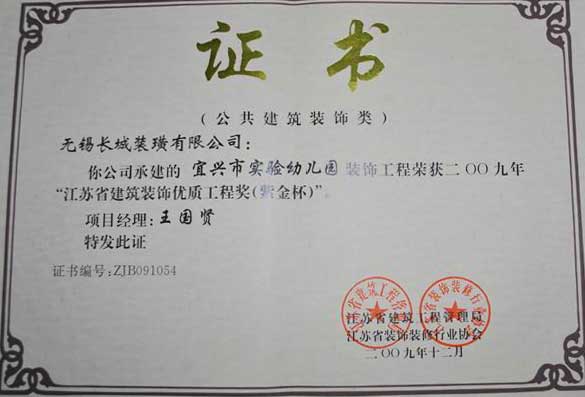 证书
(公共建筑装饰类)
无锡长城装璜有限公司:
你公司承建的 宜兴市实验幼儿园 装饰工程荣获二〇〇九年
“江苏省建筑装饰优质工程奖(紫金杯)”。
项目经理:王国贤
特发此证
证书编号:ZJB091054
江苏省建筑工程管理局
江苏省装饰装修行业协会
二〇〇九年十二月